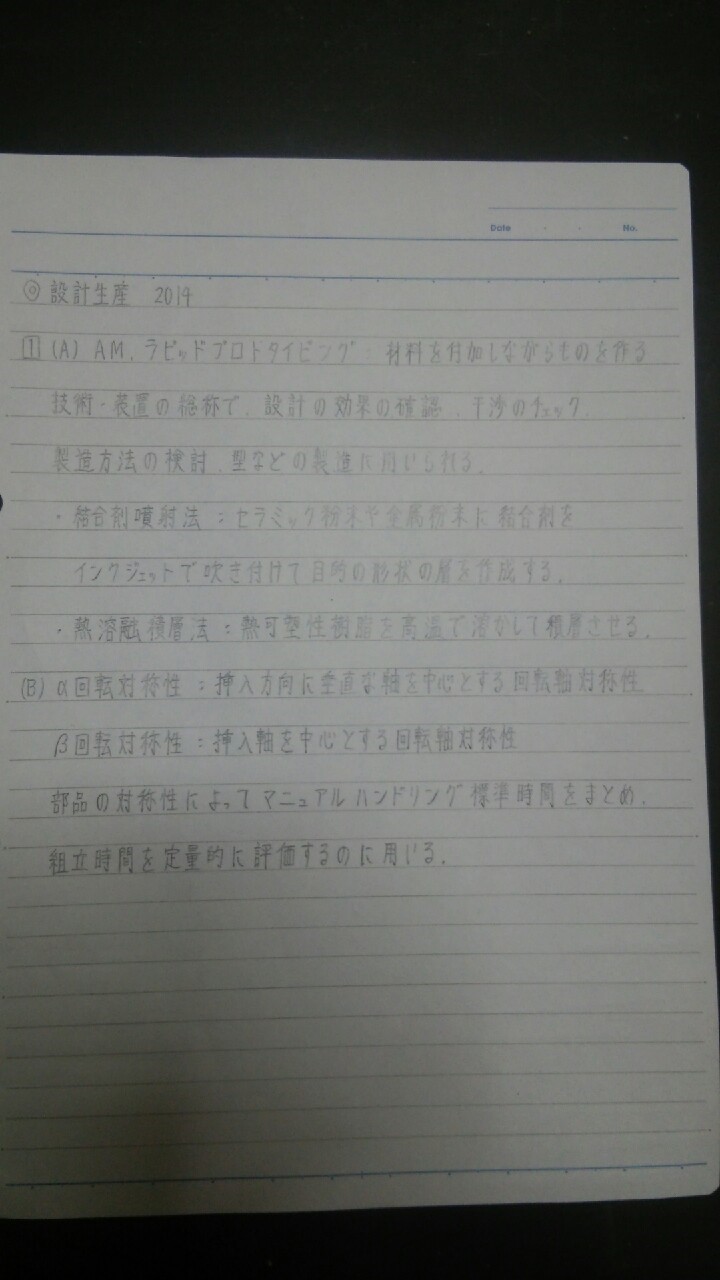 Date ・ ・ No.
◎ 設計生産 2014
1 (A) AM, ラピッドプロトタイピング : 材料を付加しながらものを作る
技術・装置の総称で, 設計の効果の確認, 干渉のチェック,
製造方法の検討, 型などの製造に用いられる.
・結合剤噴射法 : セラミック粉末や金属粉末に結合剤を
インクジェットで吹き付けて目的の形状の層を作成する.
・熱溶融積層法 : 熱可塑性樹脂を高温で溶かして積層させる.
(B) α回転対称性 : 挿入方向に垂直な軸を中心とする回転軸対称性
β回転対称性 : 挿入軸を中心とする回転軸対称性
部品の対称性によってマニュアルハンドリング標準時間をまとめ,
組立時間を定量的に評価するのに用いる.